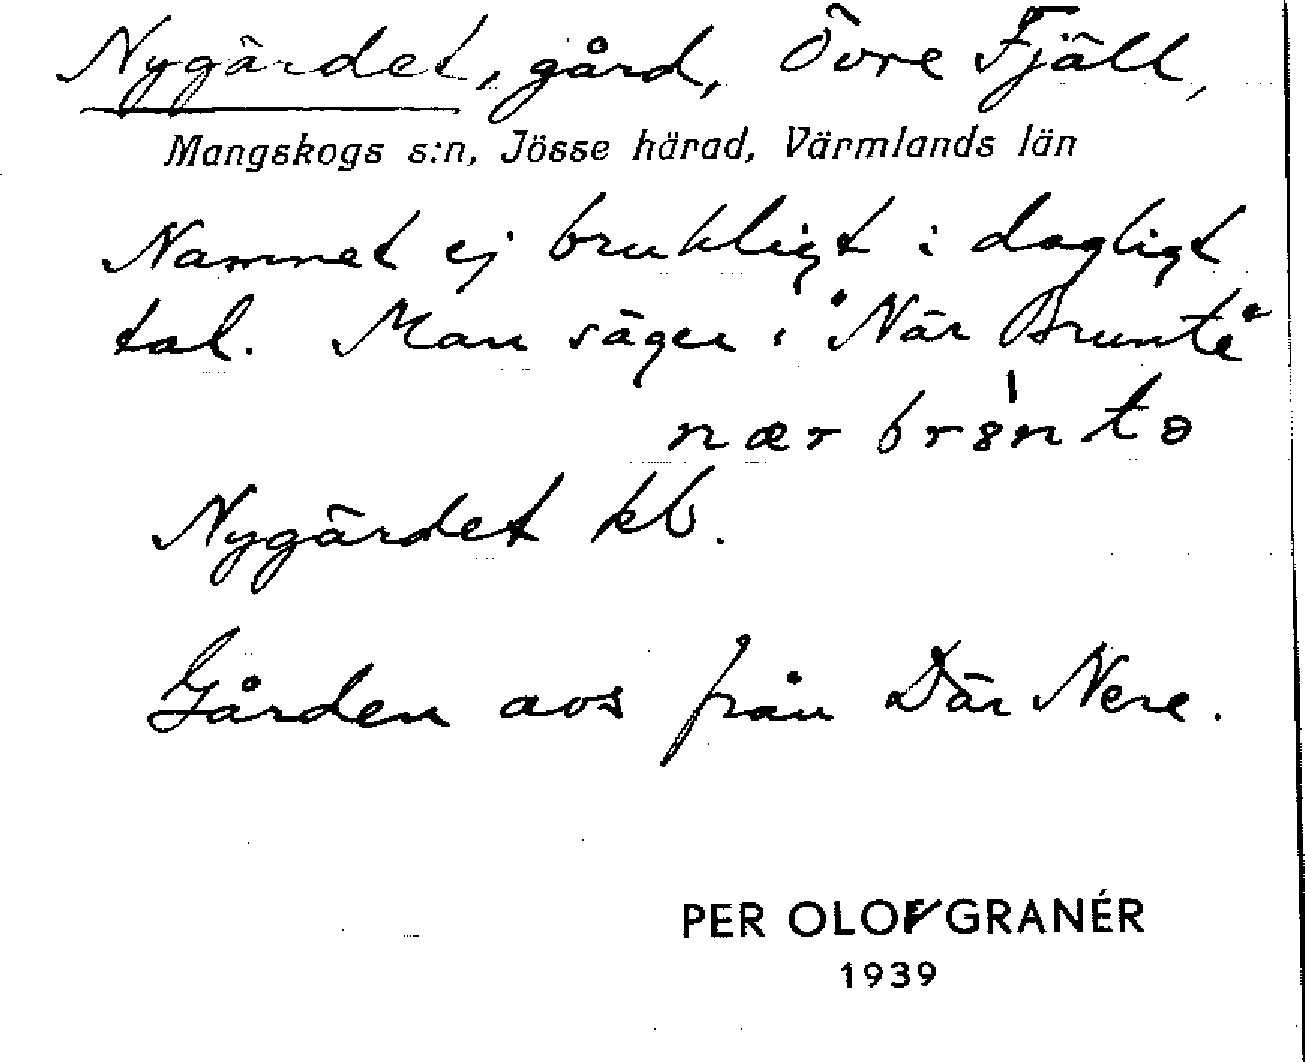 Nygärdet, gård, Övre Fjäll,
Mangskogs s:n, Jösse härad, Värmlands län
Namnet ej brukligt i dagligt
tal. Man säger: "När Brunte"
nær brɵ̍ntə
Nygärdet kb.
Gården avs från Där Nere.
PER OLOF GRANÉR
1939